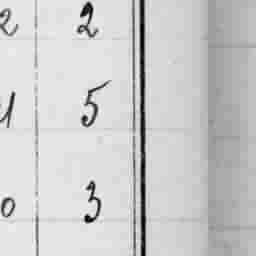 2 2
5
0 3